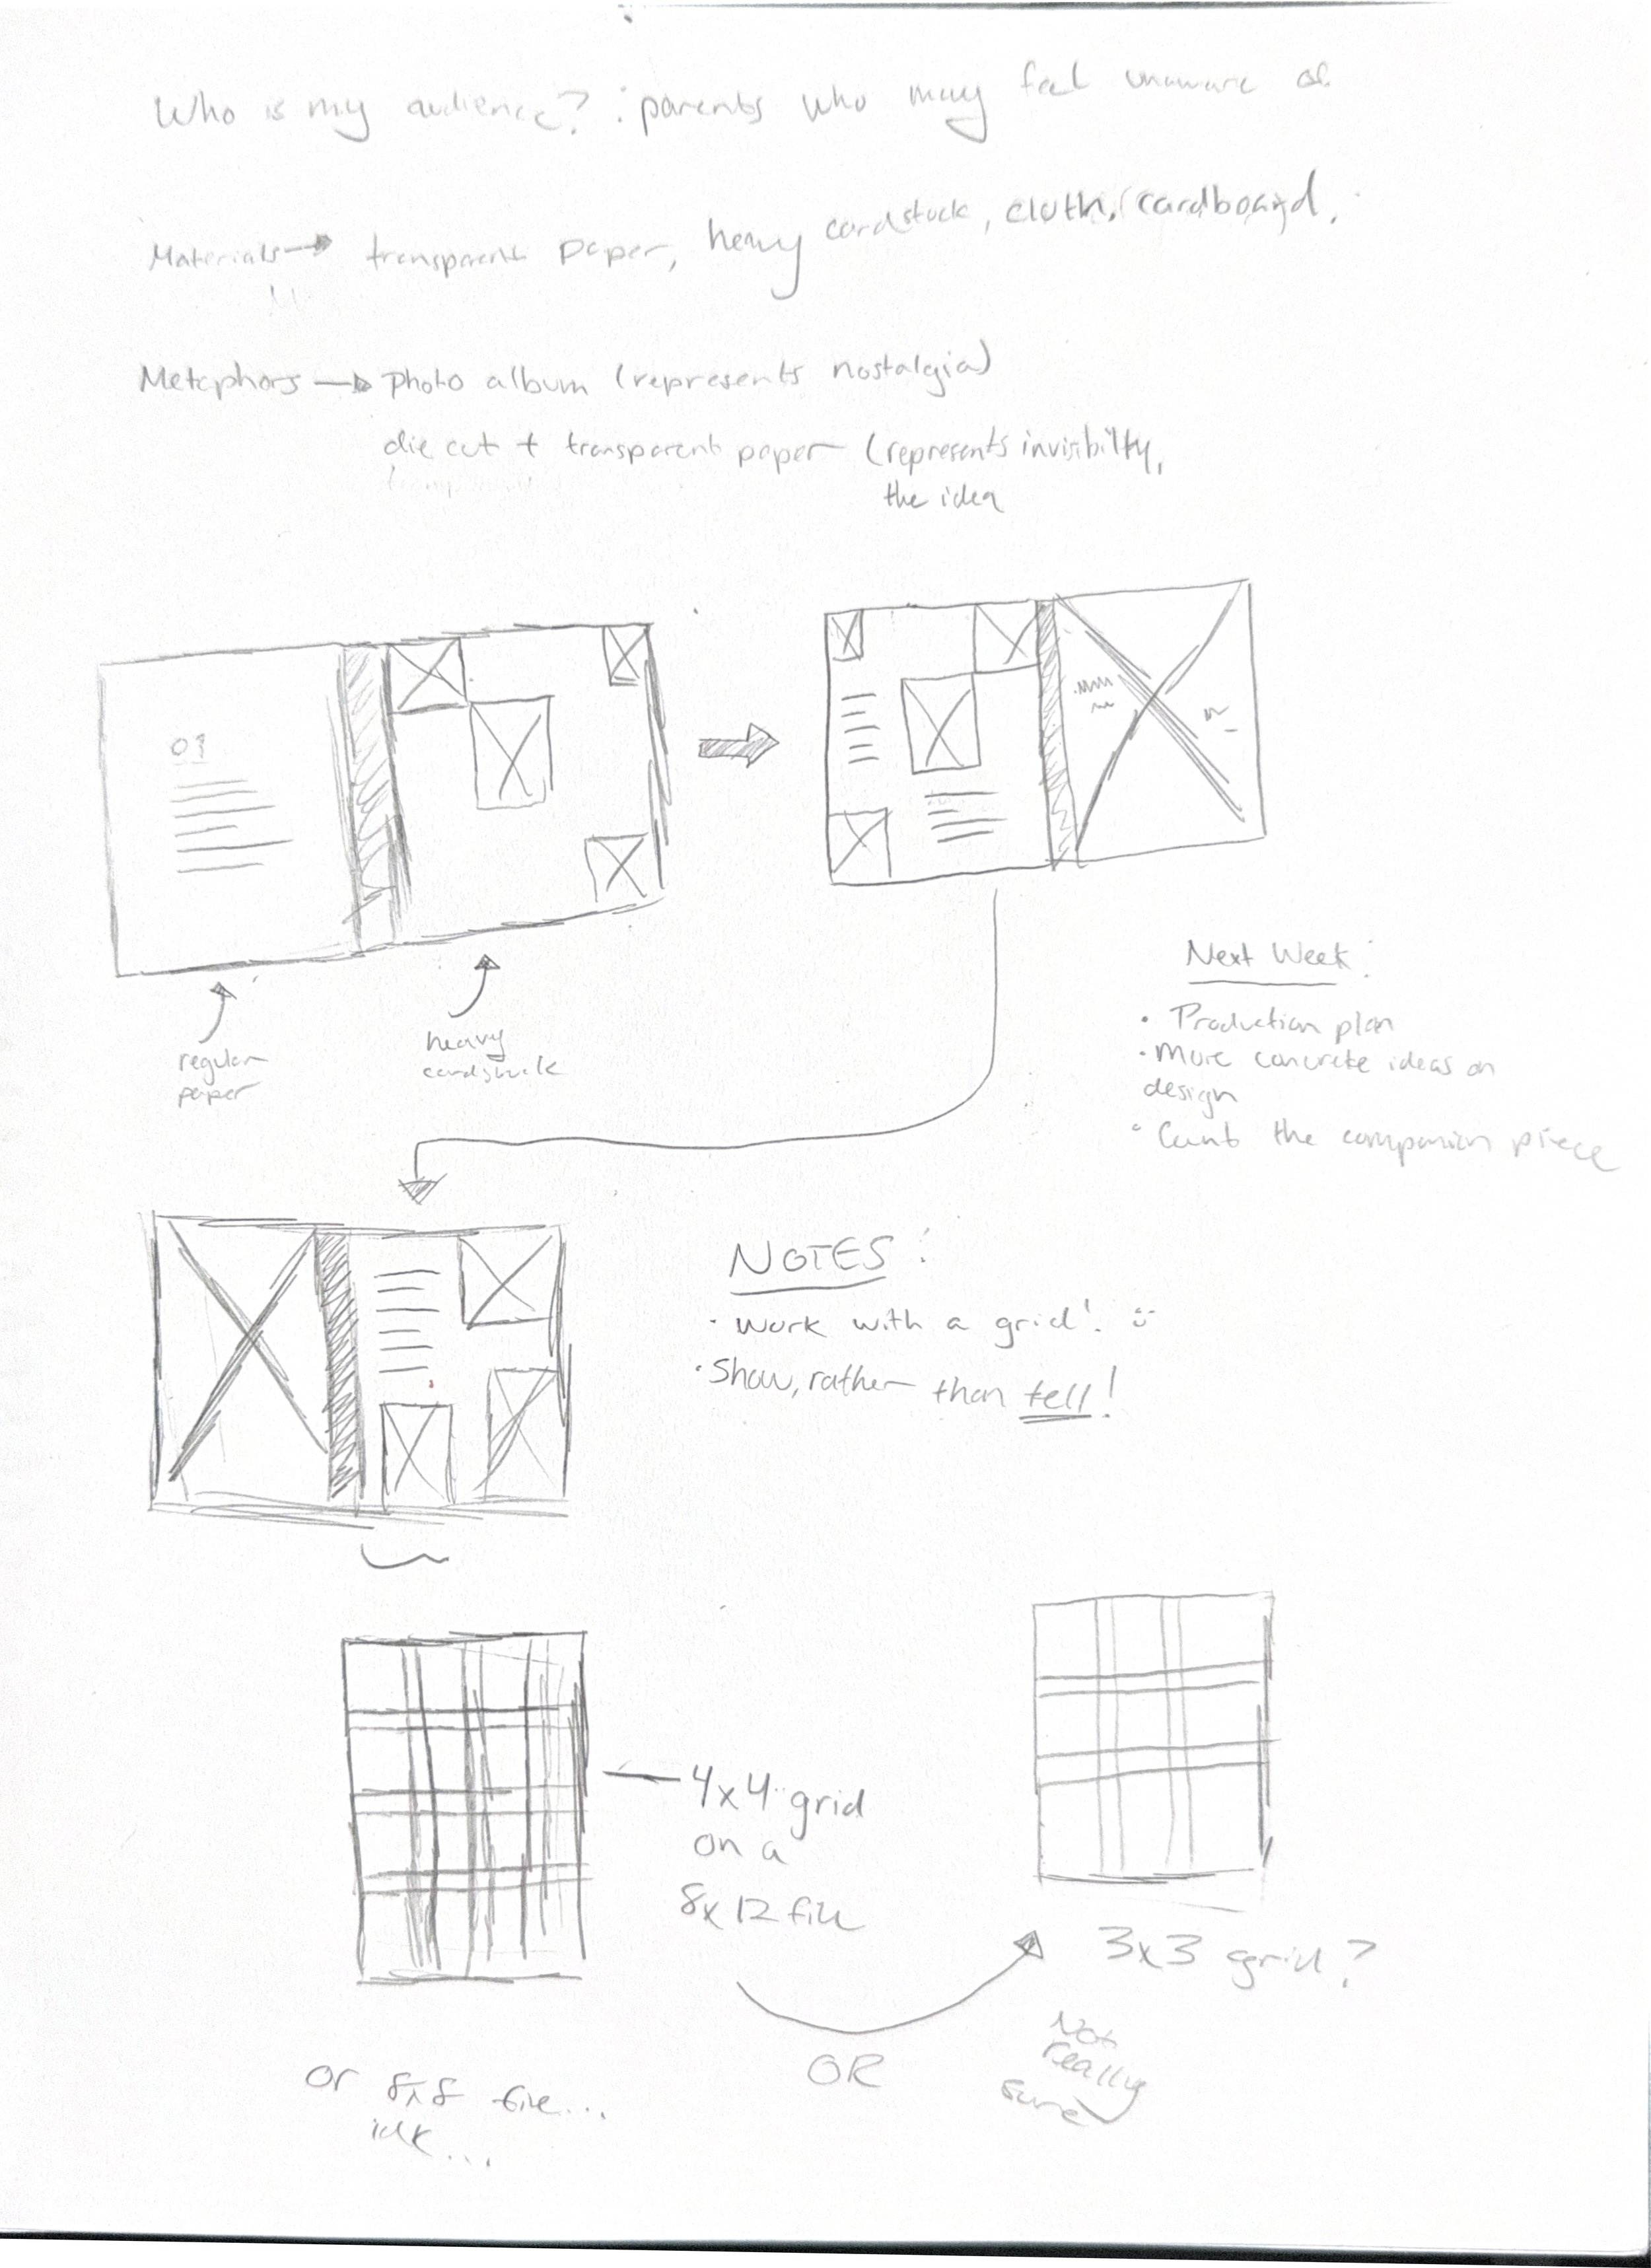 Who is my audience? : parents who may feel unaware of
Materials → transparent paper, heavy cardstock, cloth, cardboard,
Metaphors → photo album (represents nostalgia)
die cut + transparent paper (represents invisibilty,
the idea
regular
paper
heavy
cardstock
Next Week:
• Production plan
• More concrete ideas on
design
• the companion piece
NOTES:
• Work with a grid!
• Show, rather than tell!
4x4 grid
on a
8x12 file
3x3 grid?
Not
really
sure
OR
or 8x8 file...
idk...